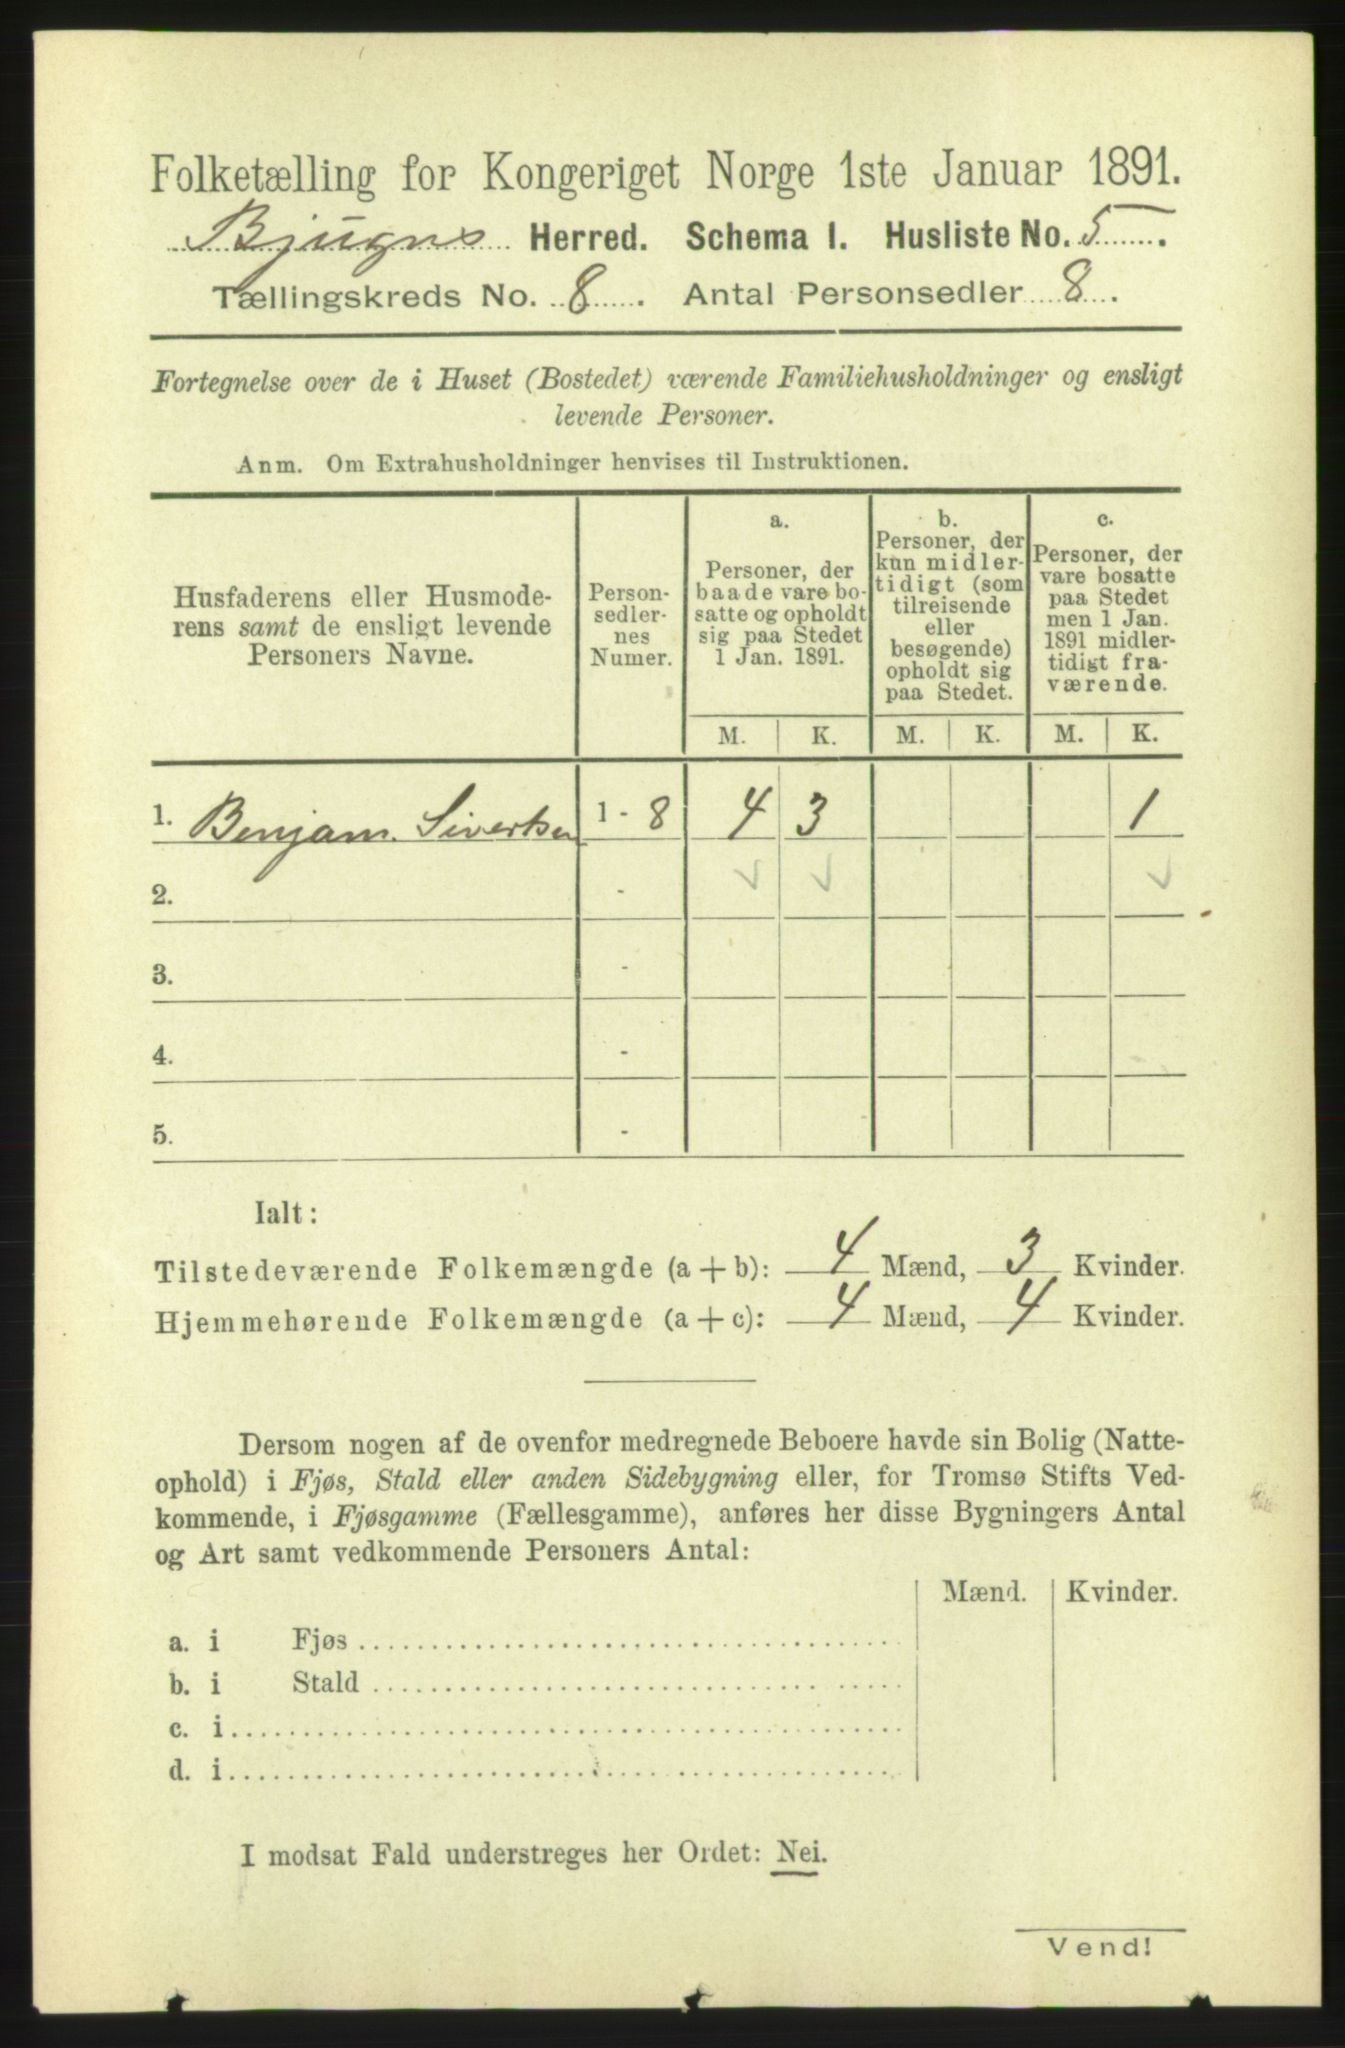 Folketælling for Kongeriget Norge 1ste Januar 1891.
Bjugns Herred. Schema I. Husliste No. 5.
Tællingskreds No. 8. Antal Personsedler 8.
Fortegnelse over de i Huset (Bostedet) værende Familiehusholdninger og ensligt
levende Personer.
Anm. Om Extrahusholdninger henvises til Instruktionen.
Husfaderens eller Husmode-
rens samt de ensligt levende
Personers Navne.
Person-
sedler-
nes
Numer.
a.
Personer, der
baade vare bo-
satte og opholdt
sig paa Stedet
1 Jan. 1891.
b.
Personer, der
kun midler-
tidigt (som
tilreisende
eller
besøgende)
opholdt sig
paa Stedet.
c.
Personer, der
vare bosatte
paa Stedet
men 1 Jan.
1891 midler-
tidigt fra-
værende.
M. K. M. K. M. K.
1. Benjam. Sivertsen 1 - 8 4 3 1
2. -
3. -
4. -
5. -
Ialt:
Tilstedeværende Folkemængde (a + b): 4 Mænd, 3 Kvinder.
Hjemmehørende Folkemængde (a + c): 4 Mænd, 4 Kvinder.
Dersom nogen af de ovenfor medregnede Beboere havde sin Bolig (Natte-
ophold) i Fjøs, Stald eller anden Sidebygning eller, for Tromsø Stifts Ved-
kommende, i Fjøsgamme (Fællesgamme), anføres her disse Bygningers Antal
og Art samt vedkommende Personers Antal:
Mænd. Kvinder.
a. i Fjøs
b. i Stald
c. i
d. i
I modsat Fald understreges her Ordet: Nei.
Vend!